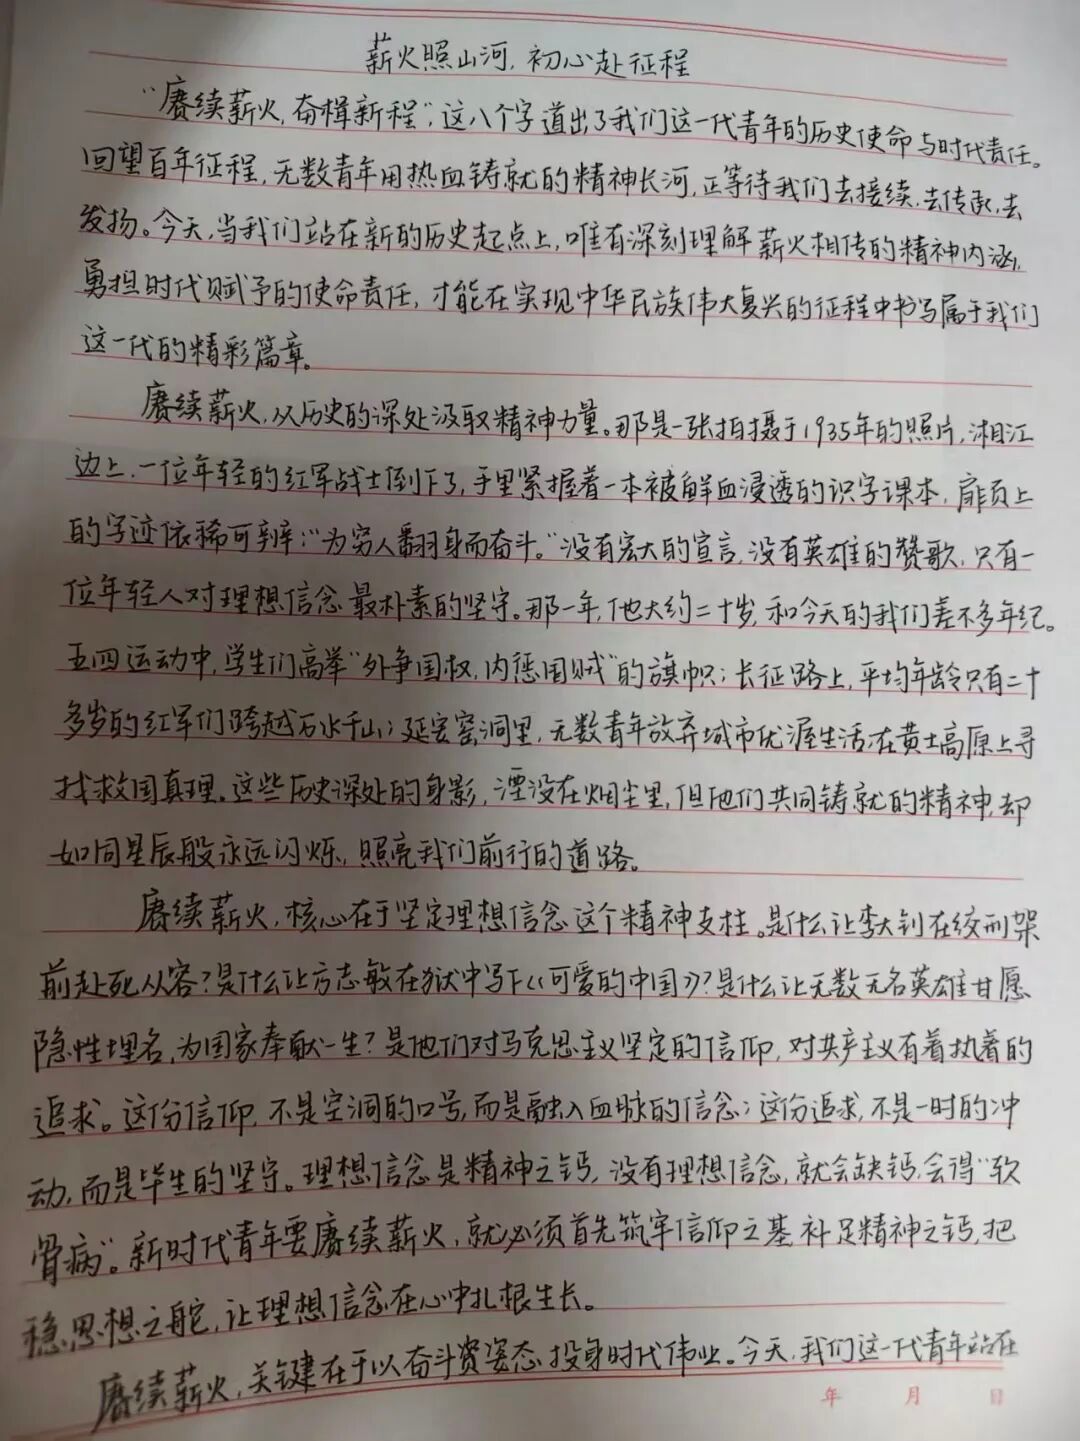 薪火照山河,初心赴征程
“赓续薪火,奋楫新程”,这八个字道出了我们这一代青年的历史使命与时代责任。
回望百年征程,无数青年用热血铸就的精神长河,正等待我们去接续、去传承,去
发扬。今天,当我们站在新的历史起点上,唯有深刻理解薪火相传的精神内涵,
勇担时代赋予的使命责任,才能在实现中华民族伟大复兴的征程中书写属于我们
这一代的精彩篇章。
赓续薪火,从历史的深处汲取精神力量。那是一张拍摄于1935年的照片,湘江
边上,一位年轻的红军战士倒下了,手里紧握着一本被鲜血浸透的识字课本,扉页上
的字迹依稀可辨:“为穷人翻身而奋斗。”没有宏大的宣言,没有英雄的赞歌,只有一
位年轻人对理想信念最朴素的坚守。那一年,他大约二十岁,和今天的我们差不多年纪。
五四运动中,学生们高举“外争国权,内惩国贼”的旗帜;长征路上,平均年龄只有二十
多岁的红军们跨越万水千山;延安窑洞里,无数青年放弃城市优渥生活,在黄土高原上寻
找救国真理。这些历史深处的身影,湮没在烟尘里,但他们共同铸就的精神,却
如同星辰般永远闪烁,照亮我们前行的道路。
赓续薪火,核心在于坚定理想信念这个精神支柱。是什么让李大钊在绞刑架
前赴死从容?是什么让方志敏在狱中写下《可爱的中国》?是什么让无数无名英雄甘愿
隐性埋名,为国家奉献一生?是他们对马克思主义坚定的信仰,对共产主义有着执着的
追求。这份信仰,不是空洞的口号,而是融入血脉的信念;这份追求,不是一时的冲
动,而是毕生的坚守。理想信念是精神之钙,没有理想信念,就会缺钙,会得“软
骨病”。新时代青年要赓续薪火,就必须首先筑牢信仰之基,补足精神之钙,把
稳思想之舵,让理想信念在心中扎根生长。
赓续薪火,关键在于以奋斗姿态投身时代伟业。今天,我们这一代青年站在
年 月 日